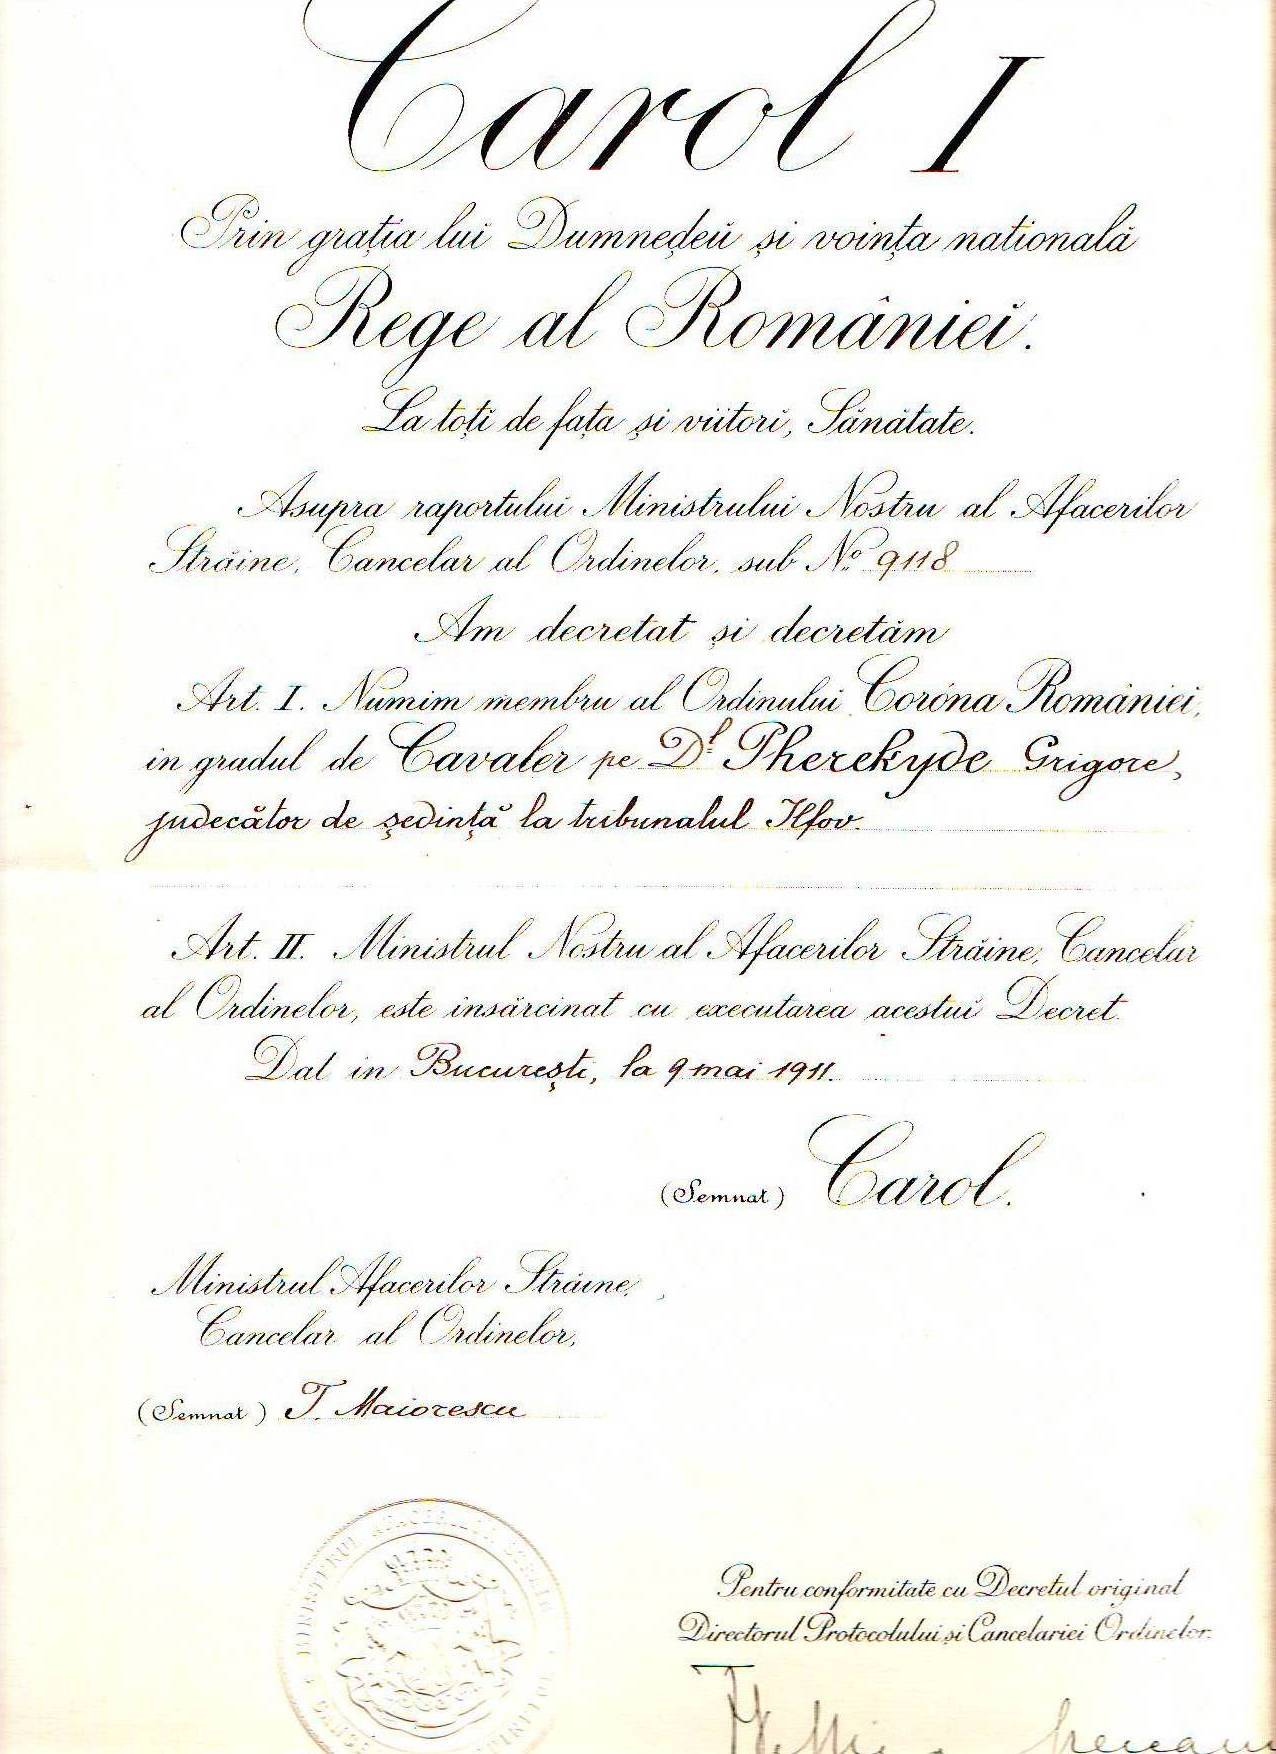 Carol I
Prin grația lui Dumnedeŭ și voința natională
Rege al Românieĭ.
La toțĭ de fața și viitorĭ, Sănătate.
Asupra raportuluĭ Ministruluĭ Nostru al Afacerilor
Străine, Cancelar al Ordinelor, sub No. 9118
Am decretat și decretăm
Art. I. Numim membru al Ordinuluĭ Coróna Românieĭ,
in gradul de Cavaler pe Dl Pherekyde Grigore,
judecător de ședință la tribunalul Ilfov.
Art. II. Ministrul Nostru al Afacerilor Străine, Cancelar
al Ordinelor, este insărcinat cu executarea acestuĭ Decret.
Dat in București, la 9 mai 1911.
(Semnat) Carol.
Ministrul Afacerilor Străine,
Cancelar al Ordinelor,
(Semnat) T. Maiorescu
Pentru conformitate cu Decretul original
Directorul Protocoluluĭ și Cancelarieĭ Ordinelor.